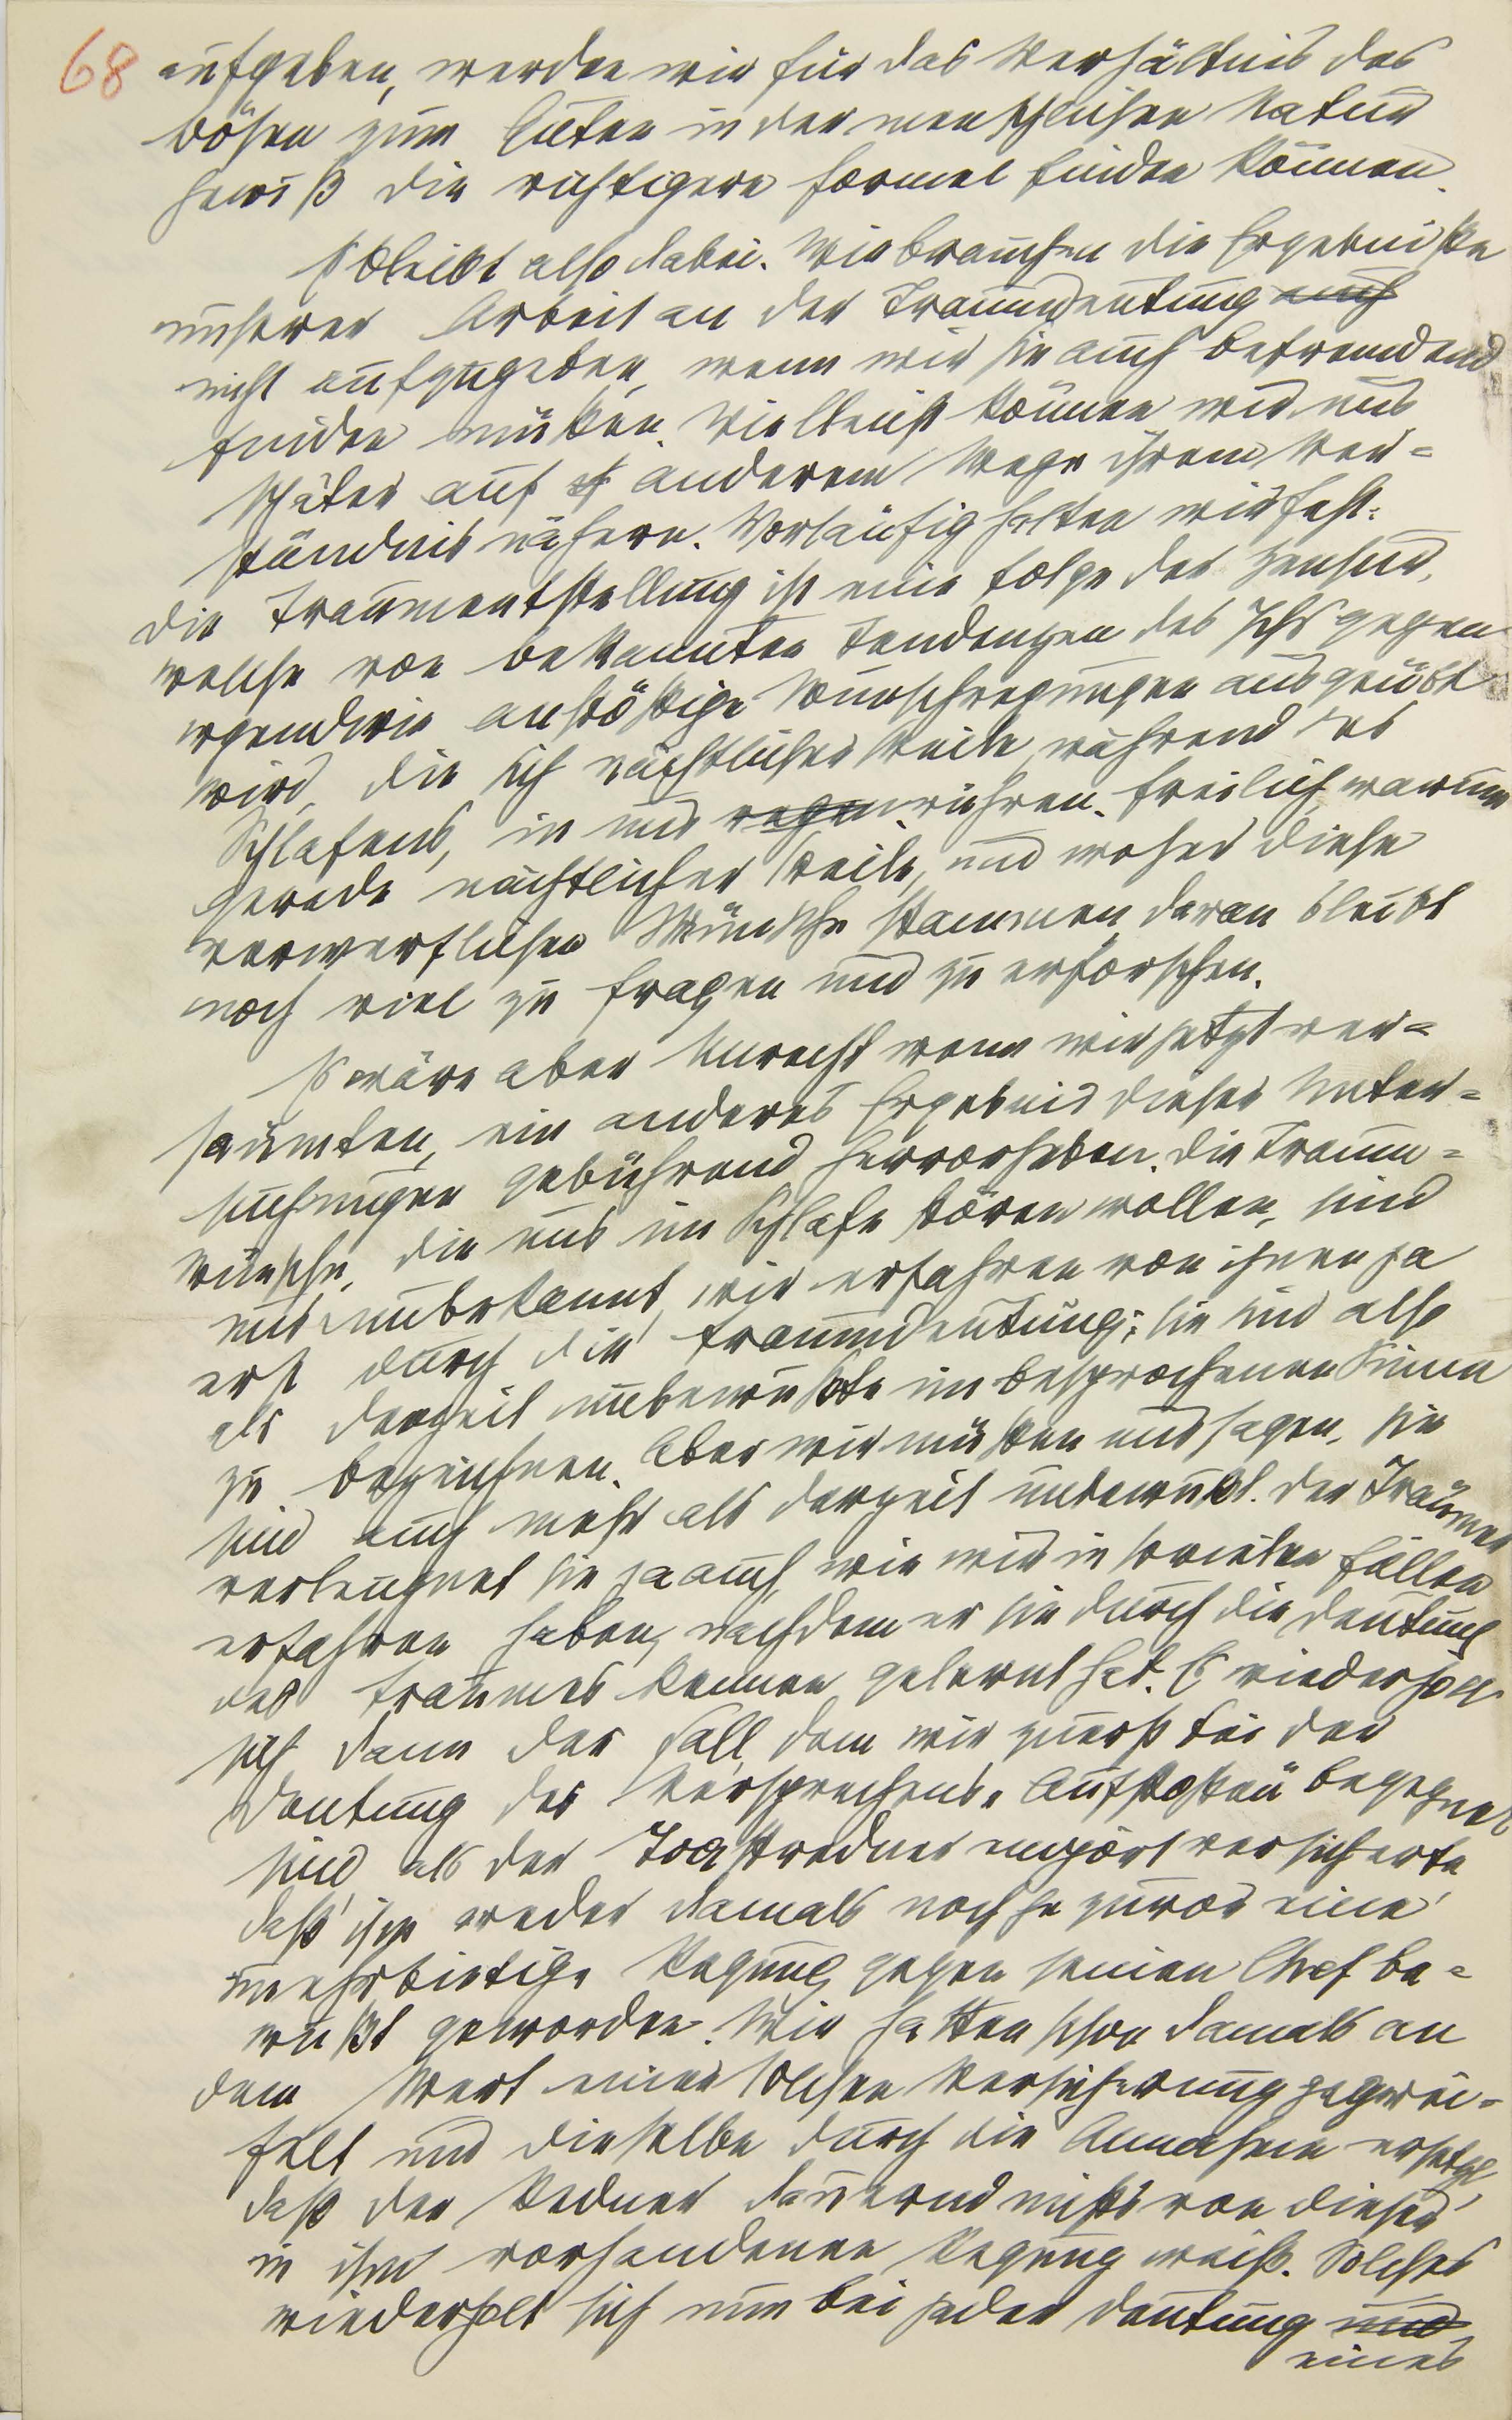 68 aufgeben, werden wir für das Verhältnis des
Bösen zum Guten in der menschlichen Natur
gewiß die richtigere Formel finden können.
Es bleibt also dabei. Wir brauchen die Ergebnisse
unserer Arbeit an der Traumdeutung auch
nicht aufzugeben, wenn wir sie auch befremdend
finden müssen. Vielleicht können wir uns
später auf anderem Wege ihrem Ver=
ständnis nähern. Vorläufig halten wir fest:
die Traumentstellung ist eine Folge der Zensur,
welche von bekannten Tendenzen des Ichs gegen
irgendwie anstößige Wunschregungen ausgeübt
wird, die sich nächtlicher Weile, während des
Schlafens, in uns regen rühren. Freilich, warum
gerade nächtlicher Weile, und woher diese
verwerflichen Wünsche stammen, daran bleibt
noch viel zu fragen und zu erforschen.
Es wäre aber Unrecht wenn wir jetzt ver=
säumten, ein anderes Ergebnis dieser Unter=
suchungen gebührend hervorheben. Die Traum=
wünsche, die uns im Schlafe stören wollen, sind
uns unbekannt, wir erfahren von ihnen ja
erst durch die Traumdeutung; sie sind also
als derzeit unbewußte im besprochenen Sinne
zu bezeichnen. Aber wir müssen uns sagen, sie
sind auch mehr als derzeit unbewußt. Der Träumer
verleugnet sie ja auch, wie wir in sovielen Fällen
erfahren haben, nachdem er sie durch die Deutung
des Traumes kennen gelernt hat. Es wiederholt
sich dann der Fall, dem wir zuerst bei der
Deutung des Versprechens „Aufstoßen" begegnet
sind als der Toastredner empört versicherte
daß ihm weder damals noch je zuvor eine
unehrbietige Regung gegen seinen Chef be=
wußt geworden. Wir hatten schon damals an
dem Wert einer solchen Versicherung gezwei=
felt und dieselbe durch die Annahme ersetzt,
daß der Redner dauernd nichts von dieser
in ihm vorhandenen Regung weiß. Solches
wiederholt sich nun bei jeder Deutung und
eines